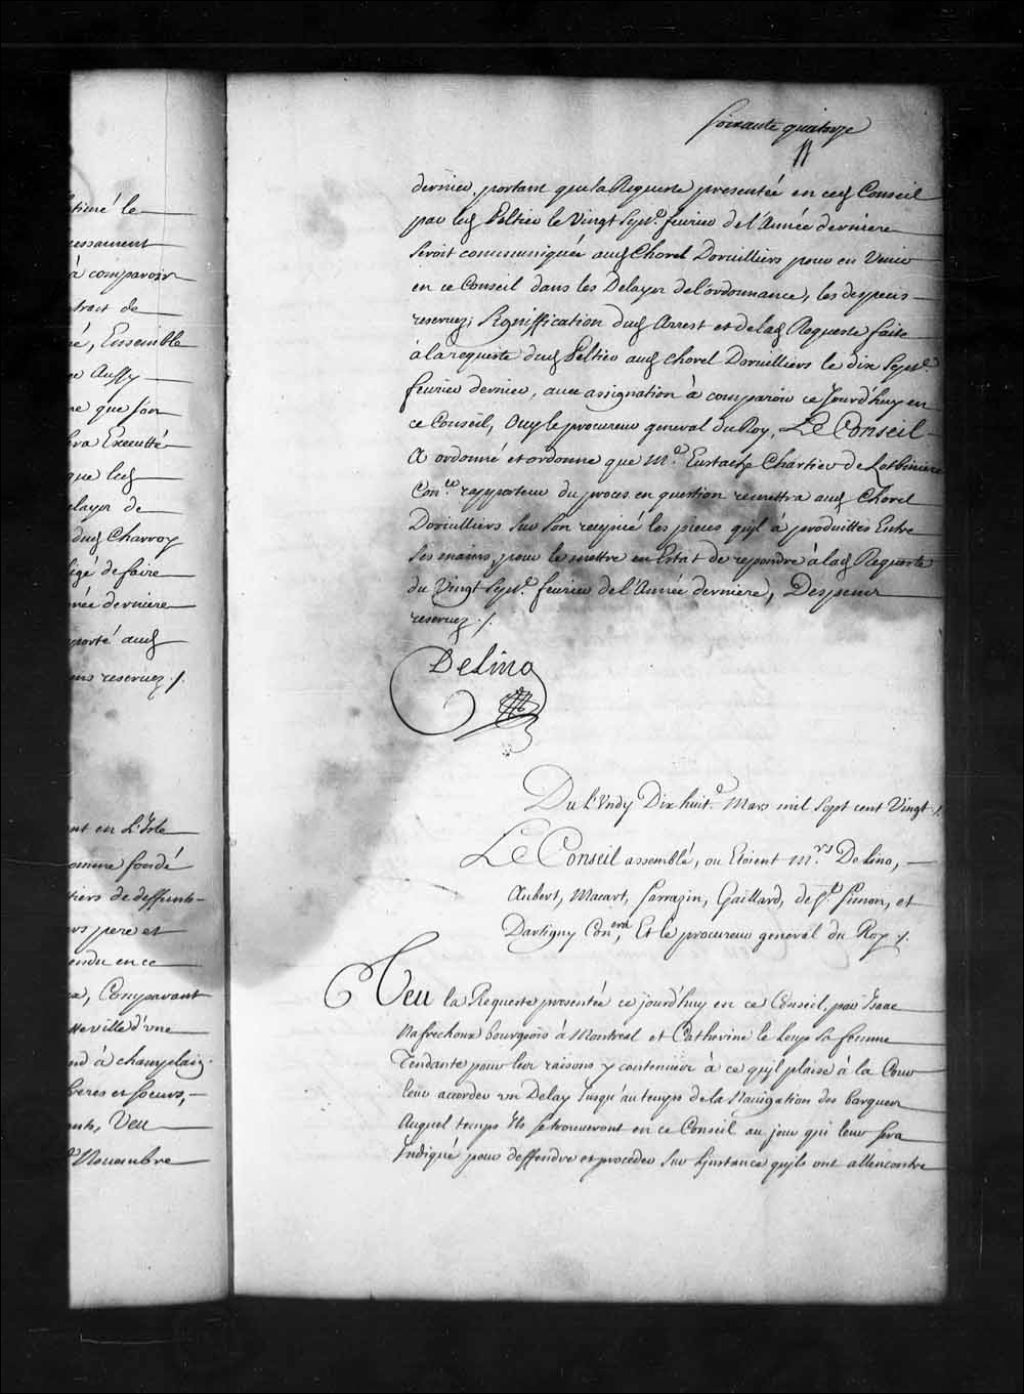 timé le
essament
à comparoir
tract de
é, Ensemble
Aussy
ne que son
era Executté
que led.
elayer de
dud. Charroy
ligé de faire
née derniere
porté aud.
ens reservez ./.
nt en L'Isle
omme fondé
tiers de deffunts
rs pere et
endu en ce
ca, Comparant
tteville d'une
nd à champlain
freres et soeurs,
nts, Veu
Nouembre
soixante quatorze
dernier, portant que la Requeste presentée en ced. Conseil
par led. Peltier le Vingt Sept.e feurier de l'Année derniere
Seroit communiquée aud. Chorel Doruilliers pour en Venir
en ce Conseil dans les Delays de l'ordonnance, les despens
reservez; Signiffication dud. Arrest et de lad. Requeste faite
à la requeste dud. Peltier aud. Chorel Doruilliers le dix Sept.e
feurier dernier, auec assignation à comparoir ce Jourd'huy en
ce Conseil, Ouy le procureur general du Roy, Le Conseil
A ordonné et ordonne que M.e Eustache Chartier de Lotbiniere
Con.er rapporteur du proces en question remettra aud. Chorel
Doruilliers Sur Son recepicé les pieces qu'il à produittes Entre
Ses mains, pour le mettre en Estat de repondre à lad. Requeste
du Vingt Sept.e feurier de l'Année derniere, Despens
reservez ./.
Delino
Du L'Undy Dix huit.e Mars mil Sept cent Vingt ./.
Le Conseil assemblé, ou Etoient M.rs Delino,
Aubert, Macart, Sarrazin, Gaillard, de S.t Simon, et
Dartigny Con.ers, Et le procureur general du Roy ./.
Veu la Requeste presentée ce jourd'huy en ce Conseil, par Isaac
Nafrechoux bourgeois à Montreal et Catherine le Loup Sa femme
Tendante pour les raisons y contenuës à ce qu'il plaise à la Cour
leur accorder un Delay Jusqu'au temps de la Nauigation des barques
Auquel temps Ils Se trouueront en ce Conseil au jour qui leur Sera
Indiqué pour deffendre et proceder Sur L'instance qu'ils ont allencontre